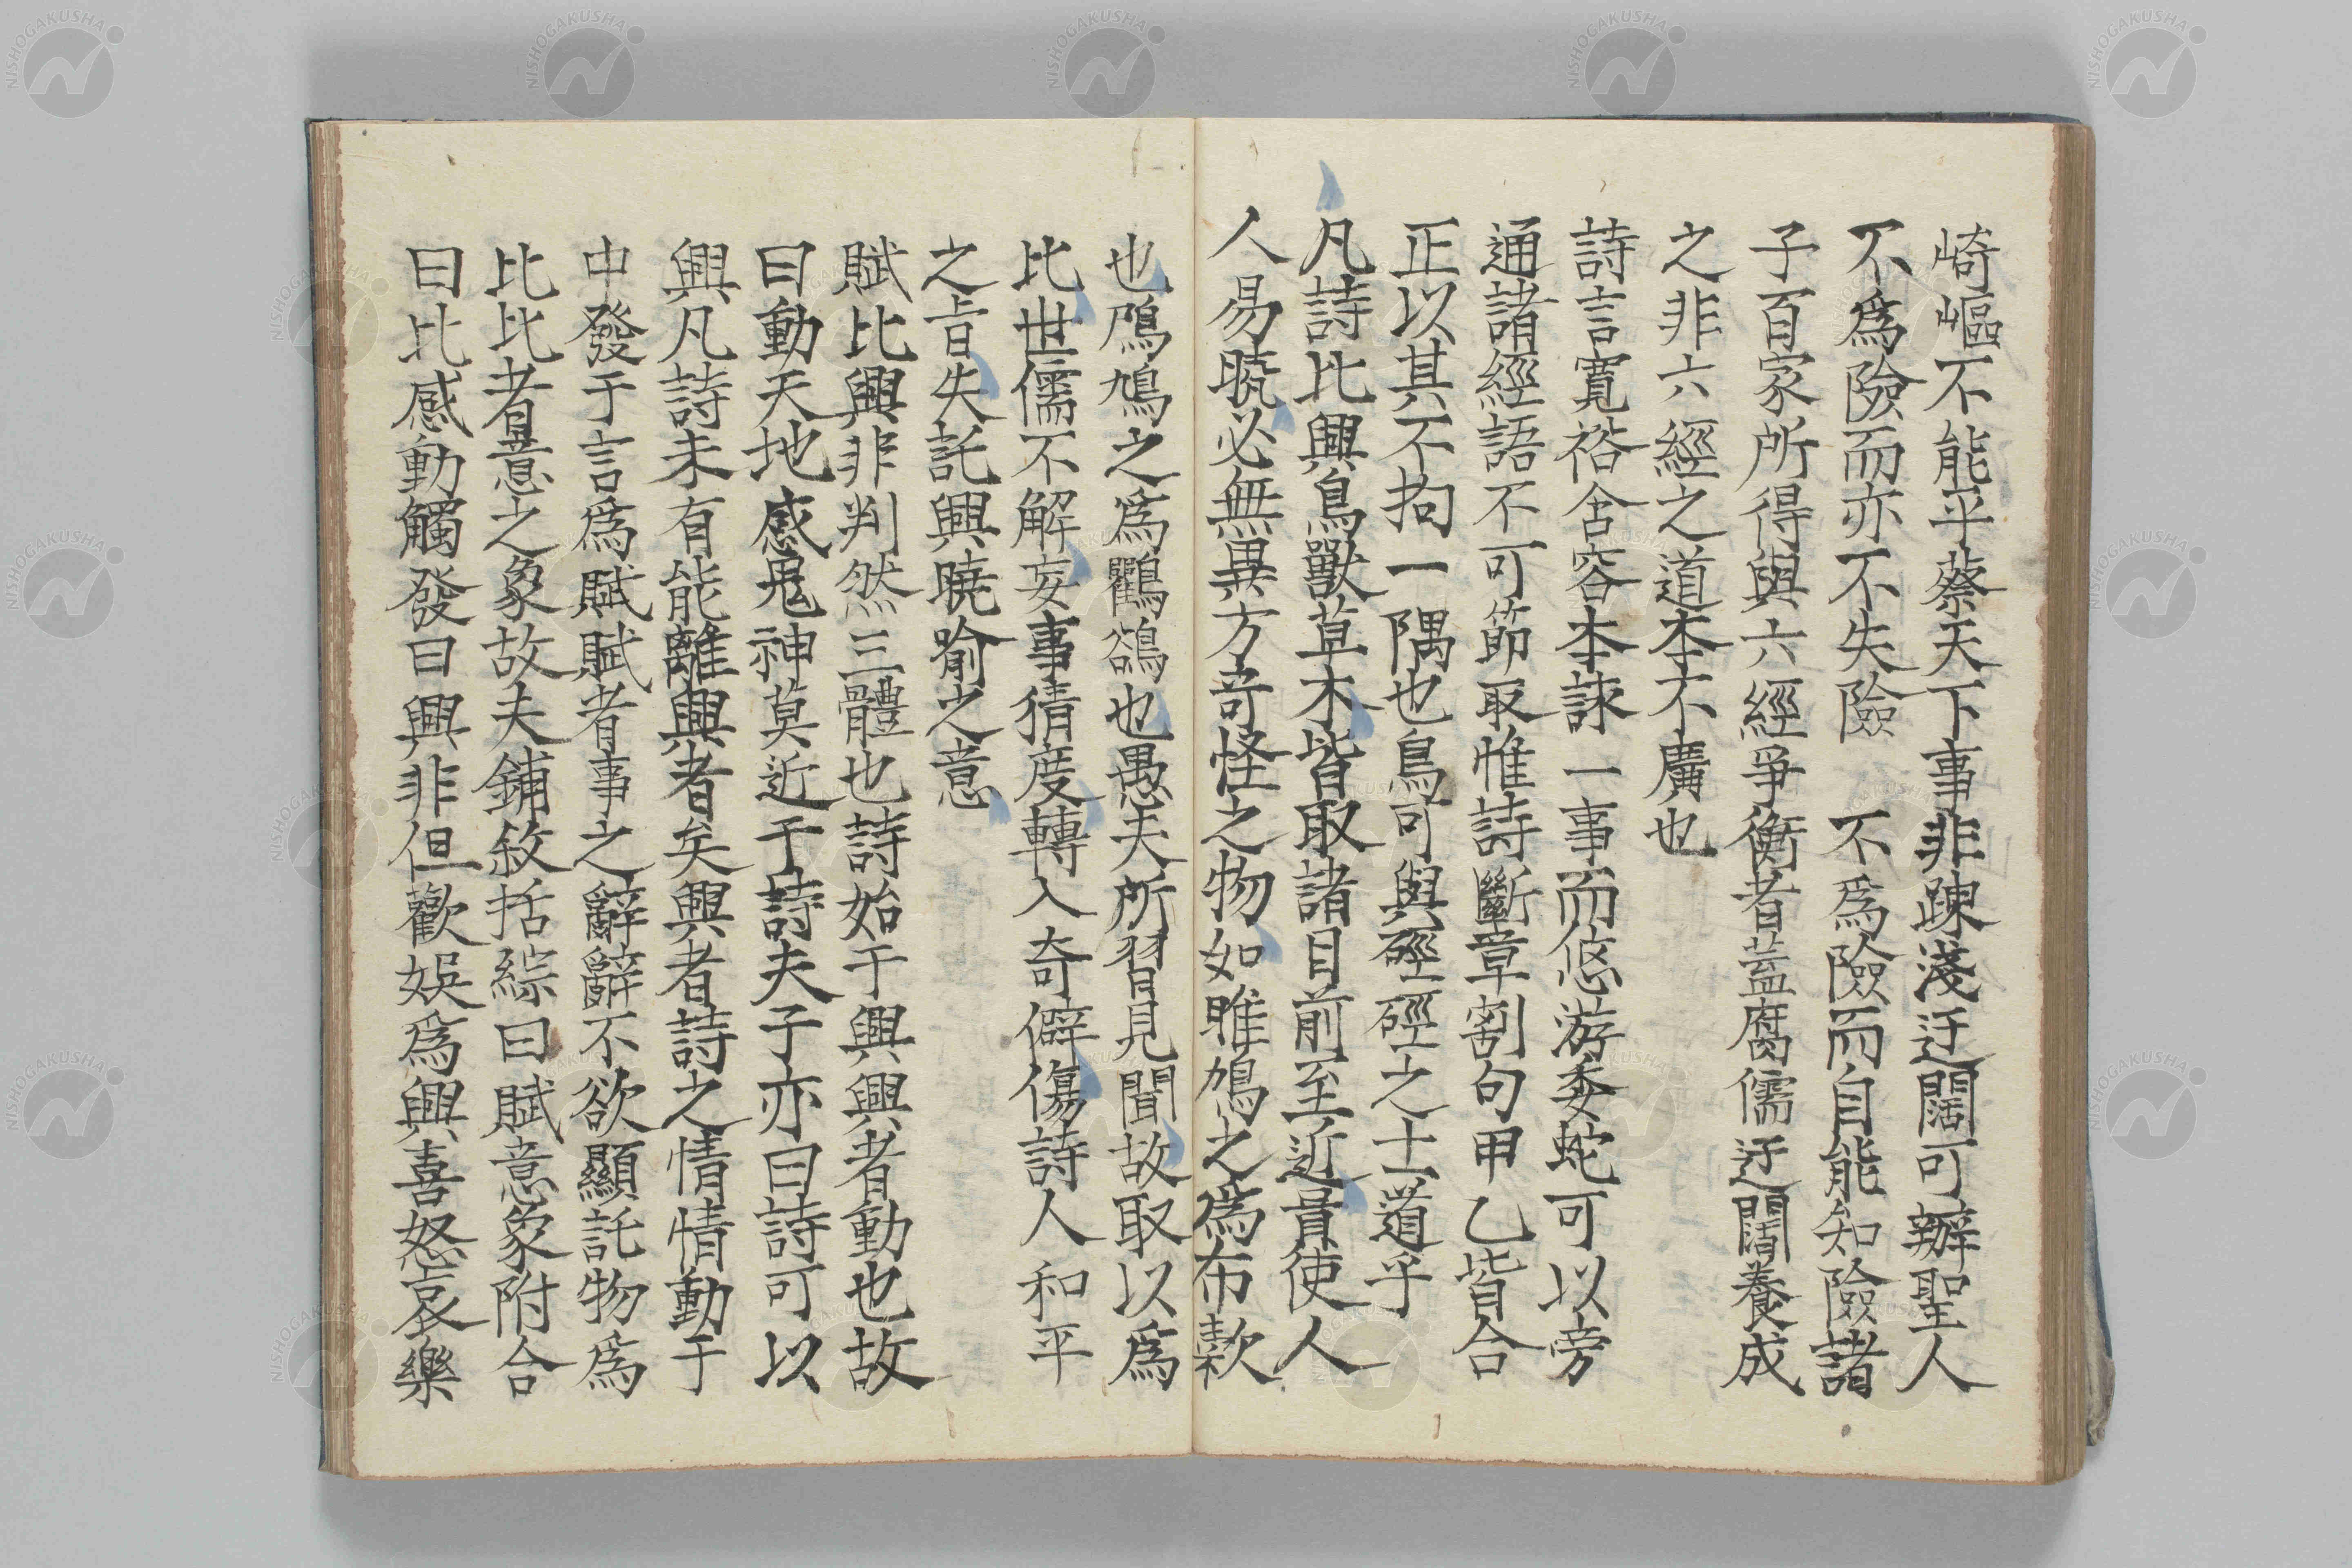 崎嶇不能乎蔡天下事非踈淺迂闊可辦聖人
不爲險而亦不失險 不爲險而自能知險諸
子百家所得與六經爭衡者蓋腐儒迂闊養成
之非六經之道本不廣也
詩言寬裕含容本諫一事而悠游委蛇可以旁
通諸經語不可節取惟詩斷章割句甲乙皆合
正以其不拘一隅也烏可與硜硜之士道乎
凡詩比興鳥獸草木皆取諸目前至近貴使人
人易暁必無異方奇怪之物如雎鳩之爲布穀
也鳲鳩之爲鸜鵒也愚夫所習見聞故取以爲
比世儒不解妄事猜度轉入奇僻傷詩人和平
之旨失託興曉喻之意
賦比興非判然三體也詩始于興興者動也故
曰動天地感鬼神莫近于詩夫子亦曰詩可以
興凡詩未有能離興者矣興者詩之情情動于
中發于言爲賦賦者事之辭辭不欲顯託物爲
比比者意之象故夫鋪敘括綜曰賦意象附合
曰比感動觸發曰興非但歡娛爲興喜怒哀樂
NISHOGAKUSHA